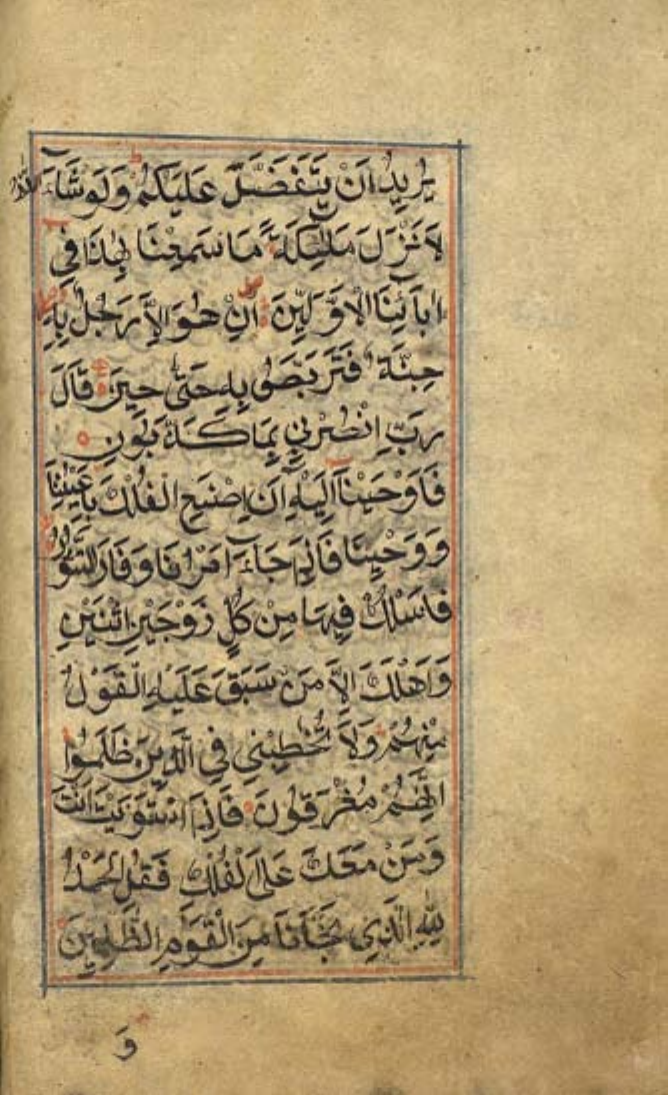 يُرِيدُ اَنْ يَتَفَضَّلَ عَلَيْكُمْ وَلَوْ شَآءَ اللّٰهُ
لَاَنْزَلَ مَلٰٓئِكَةً مَا سَمِعْنَا بِهٰذَا فِي
اٰبَآئِنَا الْاَوَّلِينَ اِنْ هُوَ اِلَّا رَجُلٌ بِهِ
جِنَّةٌ فَتَرَبَّصُوا بِهِ حَتّٰى حِينٍ قَالَ
رَبِّ انْصُرْنِي بِمَا كَذَّبُونِ
فَاَوْحَيْنَآ اِلَيْهِ اَنِ اصْنَعِ الْفُلْكَ بِاَعْيُنِنَا
وَوَحْيِنَا فَاِذَا جَآءَ اَمْرُنَا وَفَارَ التَّنُّورُ
فَاسْلُكْ فِيهَا مِنْ كُلٍّ زَوْجَيْنِ اثْنَيْنِ
وَاَهْلَكَ اِلَّا مَنْ سَبَقَ عَلَيْهِ الْقَوْلُ
مِنْهُمْ وَلَا تُخٰطِبْنِي فِي الَّذِينَ ظَلَمُوا
اِنَّهُمْ مُغْرَقُونَ فَاِذَا اسْتَوَيْتَ اَنْتَ
وَمَنْ مَعَكَ عَلَى الْفُلْكِ فَقُلِ الْحَمْدُ
لِلّٰهِ الَّذِي نَجّٰىنَا مِنَ الْقَوْمِ الظّٰلِمِينَ
وَ